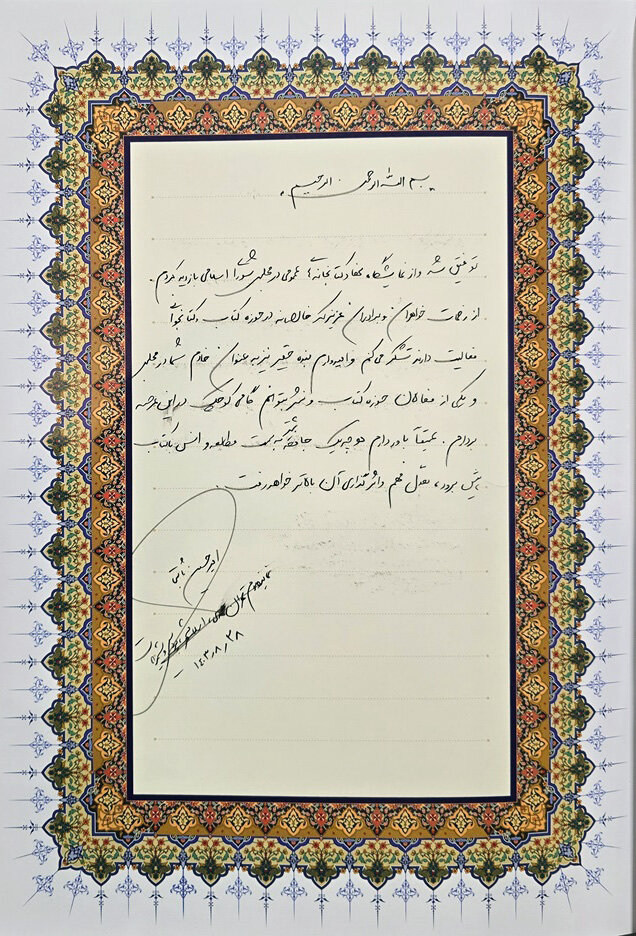 بسم الله الرحمن الرحیم
توفیق شد و از نمایشگاه نهاد کتابخانه‌های عمومی در مجلس شورای اسلامی بازدید کردم.
از زحمات خواهران و برادران عزیزی که خالصانه در حوزه کتاب و کتابخوانی
فعالیت دارند تشکر می‌کنم و امیدوارم بنده حقیر نیز به عنوان خادم شما در مجلس
و یکی از فعالان حوزه کتاب و نشر بتوانم گامی کوچک در این عرصه
بردارم. عمیقاً باور دارم هرچه یک جامعه بیشتر به سمت مطالعه و انس با کتاب
پیش برود، تعقل فهم و اثرگذاری آن بالاتر خواهد رفت.
امیرحسین ثابتی
نماینده مردم تهران
۱۴۰۳/۸/۲۸